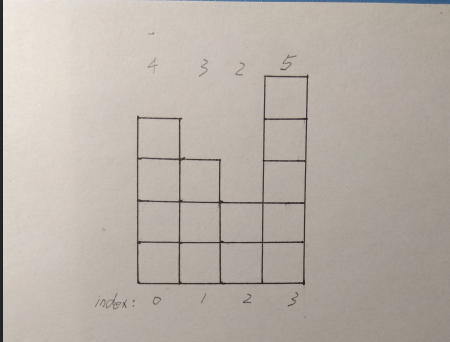 4 3 2 5
index: 0 1 2 3